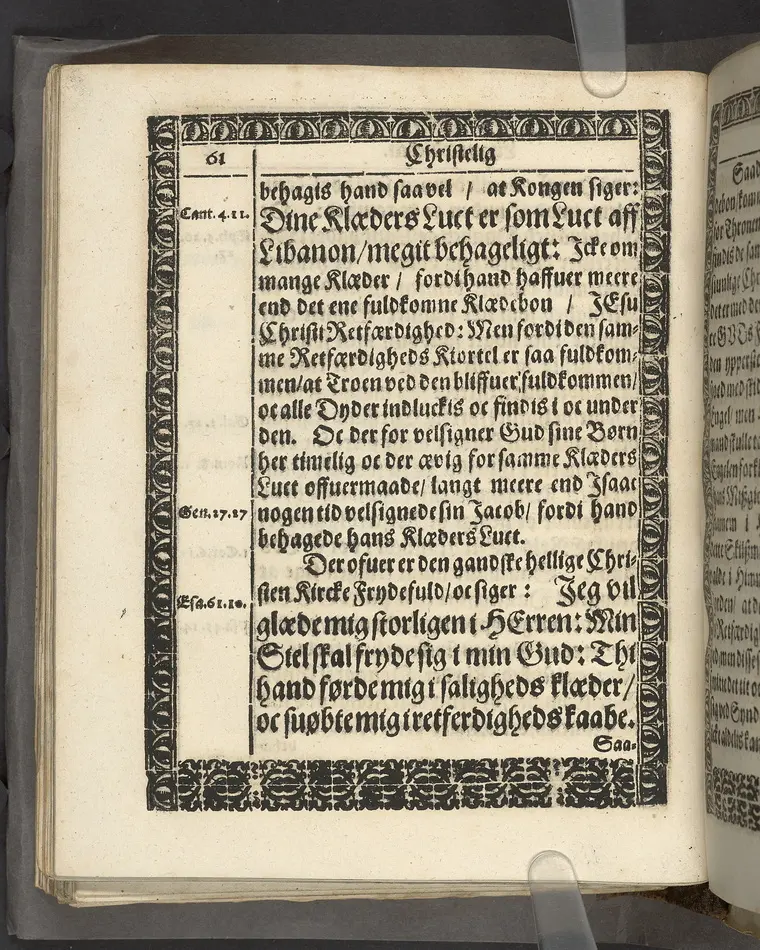 61
Christelig
behagis hand saa vel / at Kongen siger:
Cant. 4. 11.
Dine Klæders Luct er som Luct aff
Libanon/ megit behageligt: Icke om
mange Klæder / fordi hand haffuer meere
end det ene fuldkomne Klædebon / JEsu
Christi Retfærdighed: Men fordi den sam-
me Retfærdigheds Kiortel er saa fuldkom-
men/ at Troen ved den bliffuer fuldkommen/
oc alle Dyder indluckis oc findis i oc under
den. Oc der for velsigner Gud sine Børn
her timelig oc der ævig for samme Klæders
Luct offuermaade/ langt meere end Isaac
Gen. 27. 27
nogen tid velsignede sin Jacob/ fordi hand
behagede hans Klæders Luct.
Der ofuer er den gandske hellige Chri-
sten Kircke Frydefuld/ oc siger : Jeg vil
Esa. 61. 10.
glæde mig storligen i HErren: Min
Siel skal fryde sig i min Gud: Thi
hand førde mig i saligheds klæder/
oc suøbte mig i retferdigheds kaabe.
Saa-